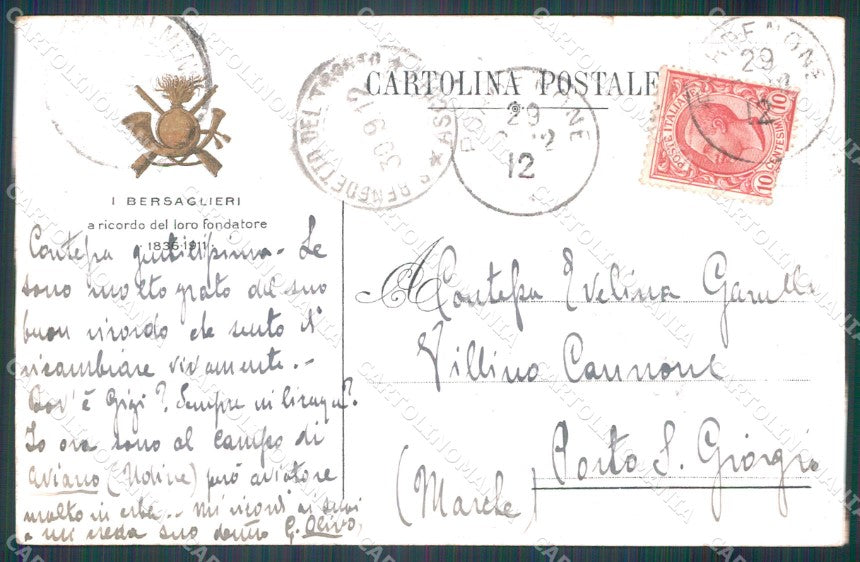 CARTOLINA POSTALE
I BERSAGLIERI
a ricordo del loro fondatore
1836-1911
Contessa gentilissima - Le
sono molto grato del suo
buon ricordo che sento di
ricambiare vivamente. -
Dov'è Gigi? Sempre in
Io ora sono al campo di
Aviano (Udine) però aviatore
molto in erba.. mi ricordi ai suoi
e mi creda suo devmo G. Olivo
A Contessa Evelina
Villino Cannone
Porto S. Giorgio
(Marche)
PORDENONE
29
12
S. BENEDETTO DEL TRONTO
30 9 12
PORDENONE
29
12
POSTE ITALIANE
10 CENTESIMI 10
CARTOLINOMANIA